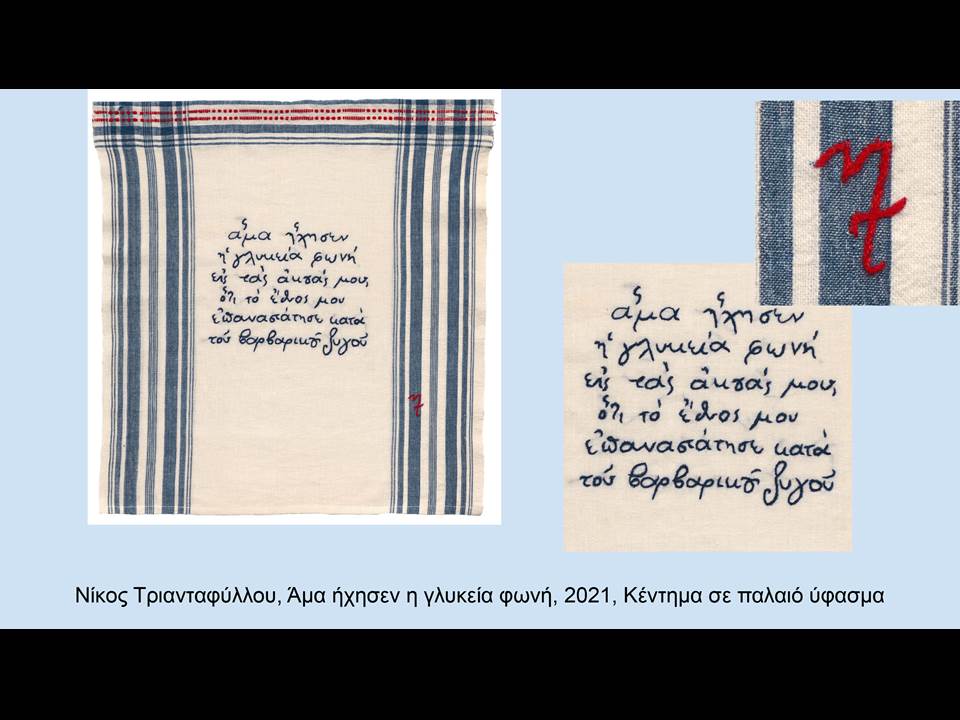 ἅμα ἤχησεν
ἡ γλυκεία φωνή
εἰς τὰς ἀκοάς μου,
ὅτι τὸ ἔθνος μου
ἐπαναστάτησε κατὰ
τοῦ βαρβαρικοῦ ζυγοῦ
ἅμα ἤχησεν
ἡ γλυκεία φωνή
εἰς τὰς ἀκοάς μου,
ὅτι τὸ ἔθνος μου
ἐπαναστάτησε κατὰ
τοῦ βαρβαρικοῦ ζυγοῦ
Νίκος Τριανταφύλλου, Άμα ήχησεν η γλυκεία φωνή, 2021, Κέντημα σε παλαιό ύφασμα